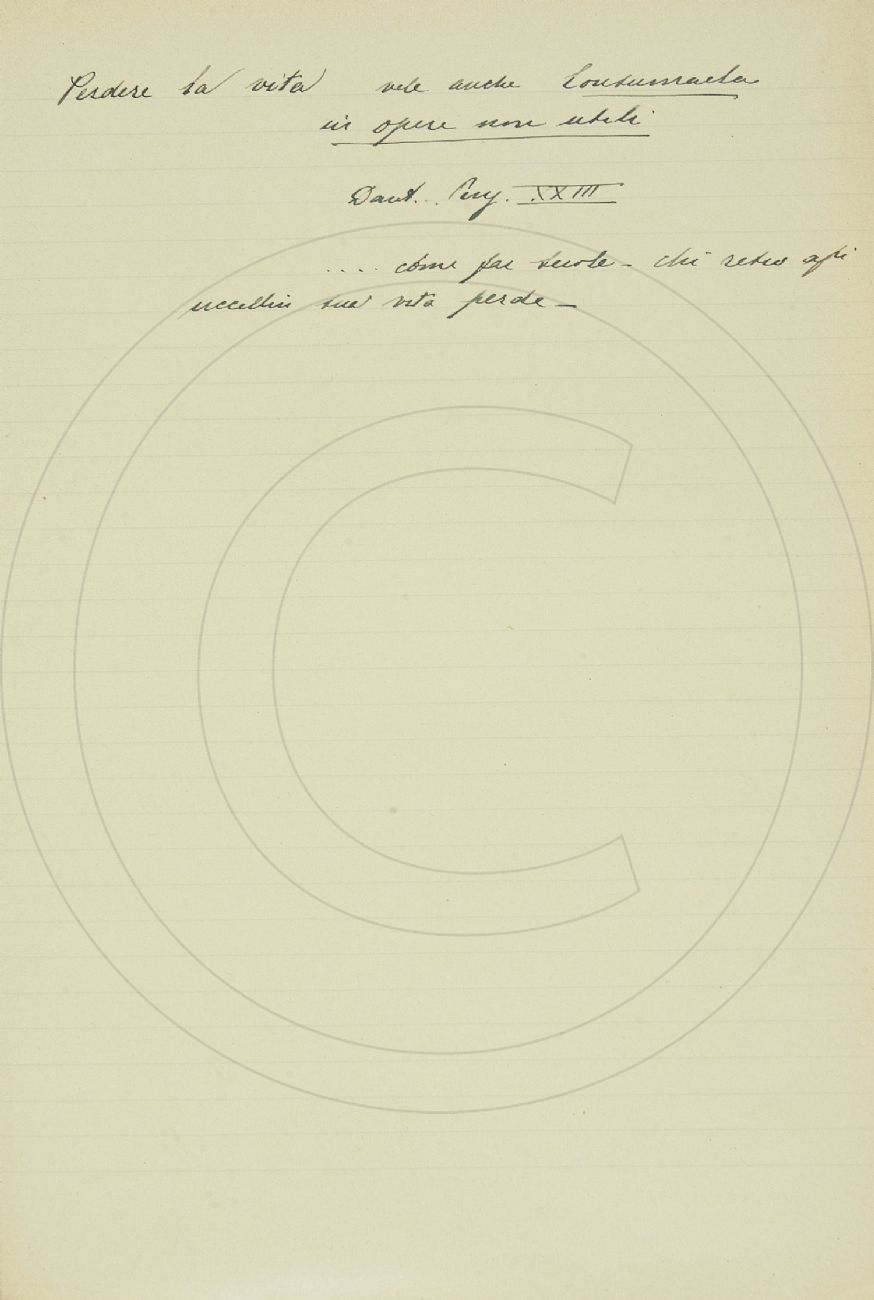 Perdere la vita vale anche Consumarla
in opere non utili
Dant. Purg. XXIII
.... come far suole - chi retro agli
uccellin sua vita perde -